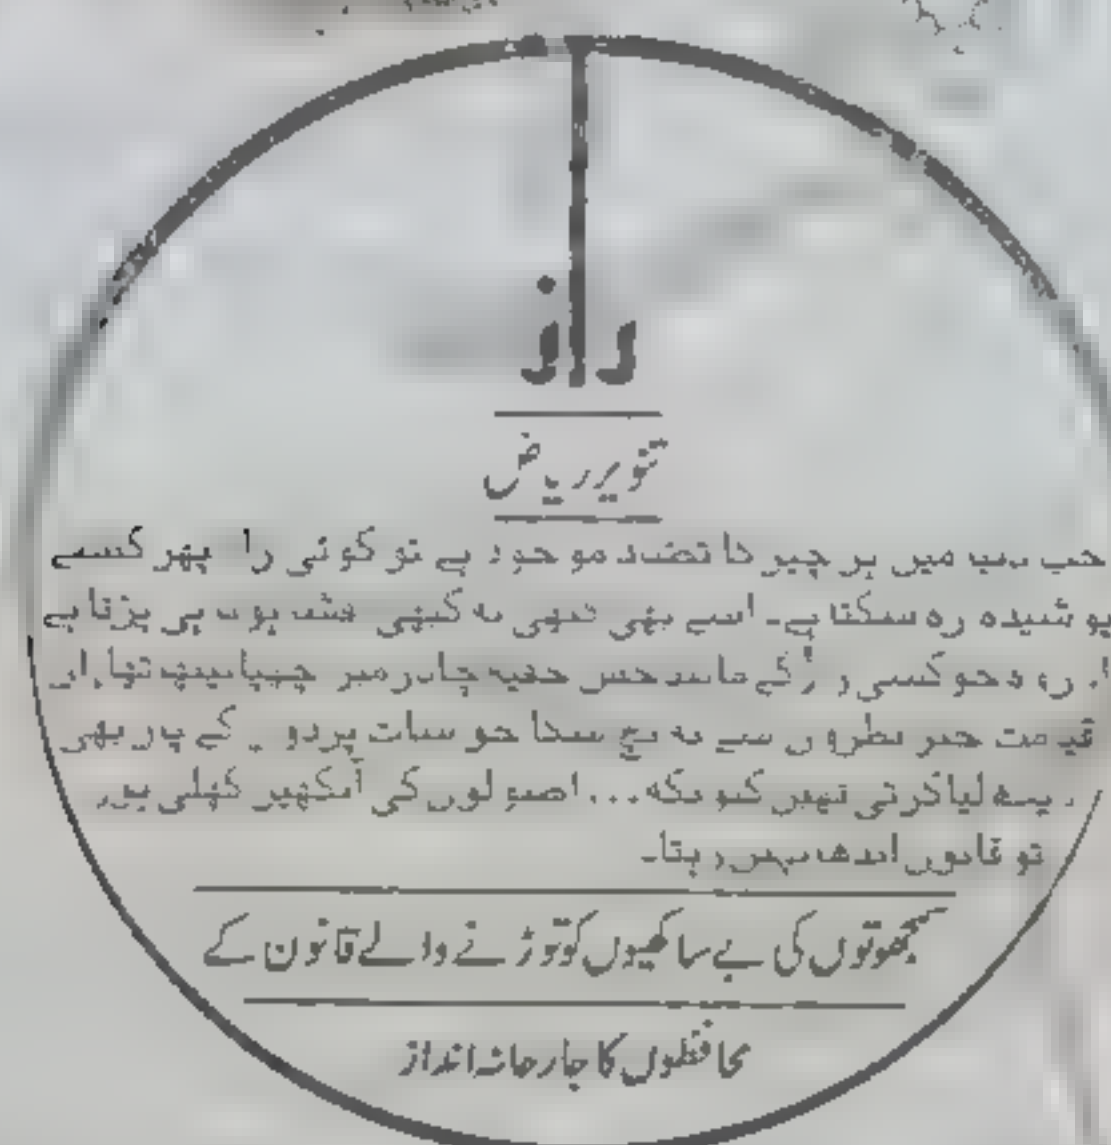 راز
تنویر ریاض
جب میں ہر چیز کا تضاد موجود ہے تو کوئی پھر کیسے
پوشیدہ رہ سکتا ہے۔ اسے بھی کبھی نہ کبھی ہونا ہی پڑتا ہے
وہ جو کسی کے مانند جس خفیہ چادر میں چھپا بیٹھا تھا، ان
نظروں سے نہ بچ سکا جو سات پردوں کے پار بھی
لیا کرتی تھیں کیونکہ... اصولوں کی آنکھیں کھلی ہوں
تو قانون اندھا نہیں رہتا۔
سمجھوتوں کی بے ساکھیوں کو توڑنے والے قانون کے
محافظوں کا جارحانہ انداز